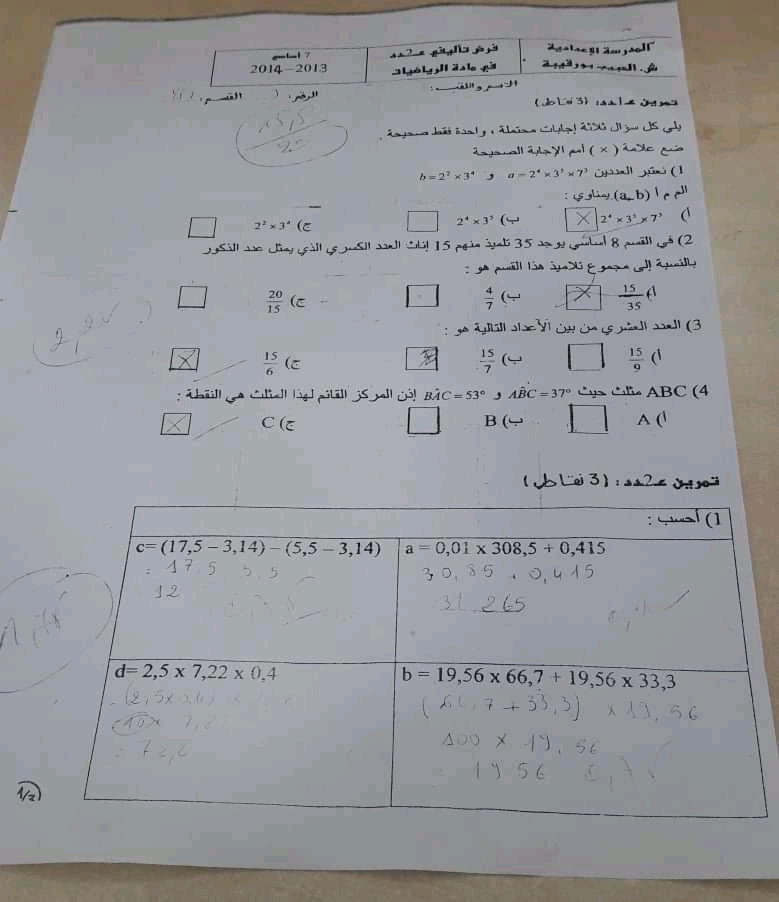 المدرسة الإعدادية
ش. الحبيب بورقيبة
فرض تأليفي عـ2ـدد
في مادة الرياضيات
7 أساسي
2013-2014
الاسم واللقب:
الرقم:
القسم:
15,5
20
تمرين عـ1ـدد: (3 نقاط)
يلي كل سؤال ثلاثة إجابات محتملة، واحدة فقط صحيحة.
ضع علامة (×) أمام الإجابة الصحيحة
1) نعتبر العددين a = 2⁴ × 3³ × 7³ و b = 2² × 3⁴
الم م أ (a, b) يساوي:
أ) 2⁴ × 3³ × 7³ ☒ ب) 2⁴ × 3³ ☐ ج) 2² × 3⁴ ☐
2) في القسم 8 أساسي يوجد 35 تلميذ منهم 15 إناث العدد الكسري الذي يمثل عدد الذكور
بالنسبة إلى مجموع تلاميذ هذا القسم هو:
أ) 15/35 ☒ ب) 4/7 ☐ ج) 20/15 ☐
3) العدد العشري من بين الأعداد التالية هو:
أ) 15/9 ☐ ب) 15/7 ج) 15/6 ☒
4) ABC مثلث حيث AB̂C = 37° و BÂC = 53° إذن المركز القائم لهذا المثلث هي النقطة:
أ) A ☐ ب) B ☐ ج) C ☒
تمرين عـ2ـدد: (3 نقاط)
1) أحسب:
a = 0,01 x 308,5 + 0,415
30,85 + 0,415
31,265
c= (17,5 – 3,14) – (5,5 – 3,14)
= 17,5 5,5
12
b = 19,56 x 66,7 + 19,56 x 33,3
(66,7 + 33,3) × 19,56
100 × 19,56
= 1956
d= 2,5 x 7,22 x 0,4
= 72,2
1/2